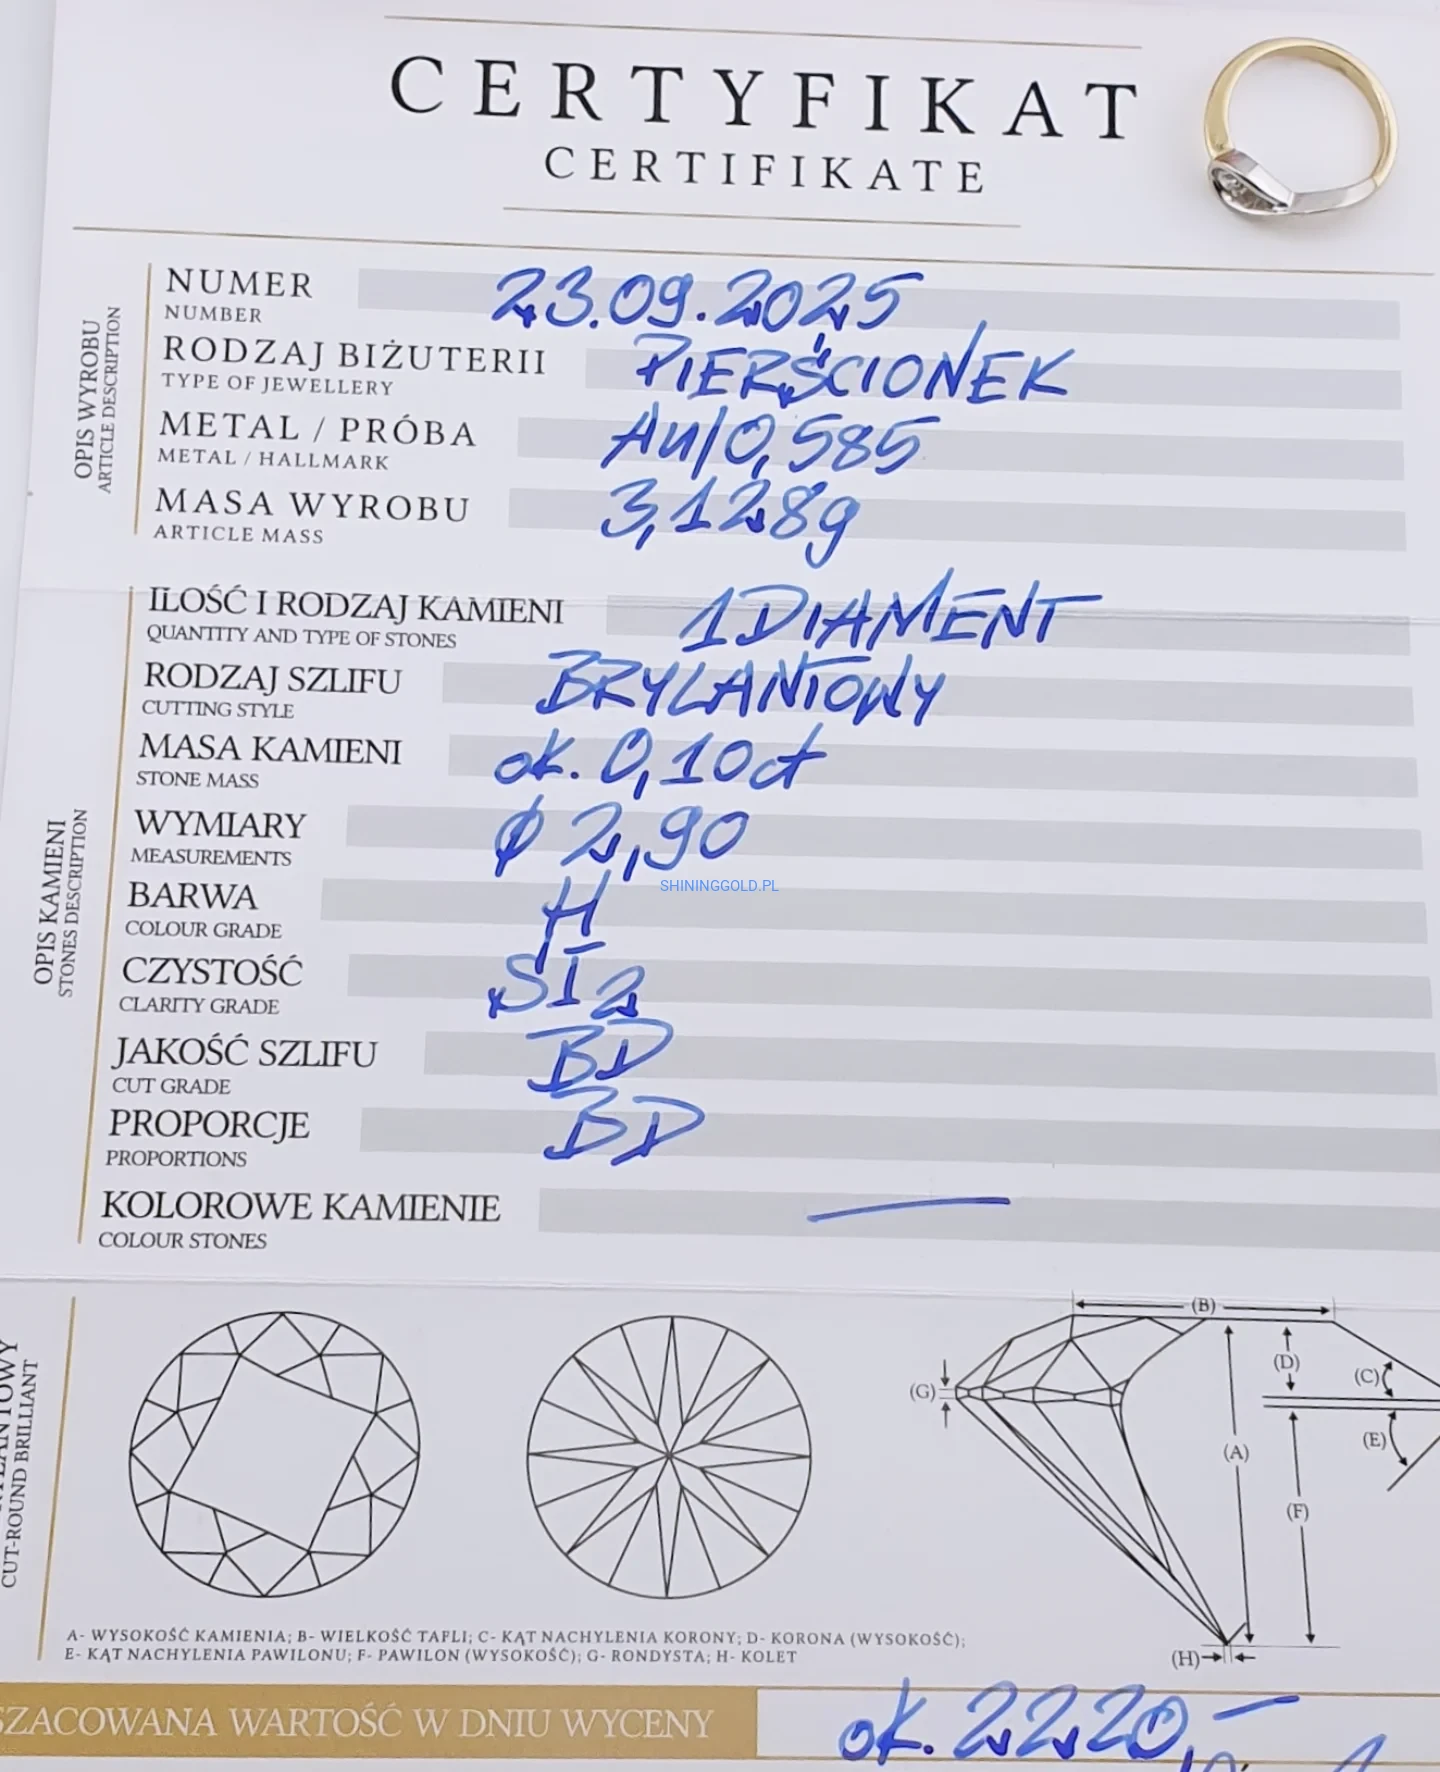 CERTYFIKAT
CERTIFIKATE
OPIS WYROBU
ARTICLE DESCRIPTION
NUMER 23.09.2025
NUMBER
RODZAJ BIŻUTERII PIERŚCIONEK
TYPE OF JEWELLERY
METAL / PRÓBA Au/0,585
METAL / HALLMARK
MASA WYROBU 3,128g
ARTICLE MASS
OPIS KAMIENI
STONES DESCRIPTION
ILOŚĆ I RODZAJ KAMIENI 1 DIAMENT
QUANTITY AND TYPE OF STONES
RODZAJ SZLIFU BRYLANTOWY
CUTTING STYLE
MASA KAMIENI ok. 0,10ct
STONE MASS
WYMIARY φ 2,90
MEASUREMENTS
SHININGGOLD.PL
BARWA H
COLOUR GRADE
CZYSTOŚĆ SI2
CLARITY GRADE
JAKOŚĆ SZLIFU BD
CUT GRADE
PROPORCJE BD
PROPORTIONS
KOLOROWE KAMIENIE —
COLOUR STONES
CUT-ROUND BRILLIANT
(B)
(D)
(C)
(G)
(E)
(A)
(F)
(H)
A- WYSOKOŚĆ KAMIENIA; B- WIELKOŚĆ TAFLI; C- KĄT NACHYLENIA KORONY; D- KORONA (WYSOKOŚĆ);
E- KĄT NACHYLENIA PAWILONU; F- PAWILON (WYSOKOŚĆ); G- RONDYSTA; H- KOLET
SZACOWANA WARTOŚĆ W DNIU WYCENY ok. 2220,-